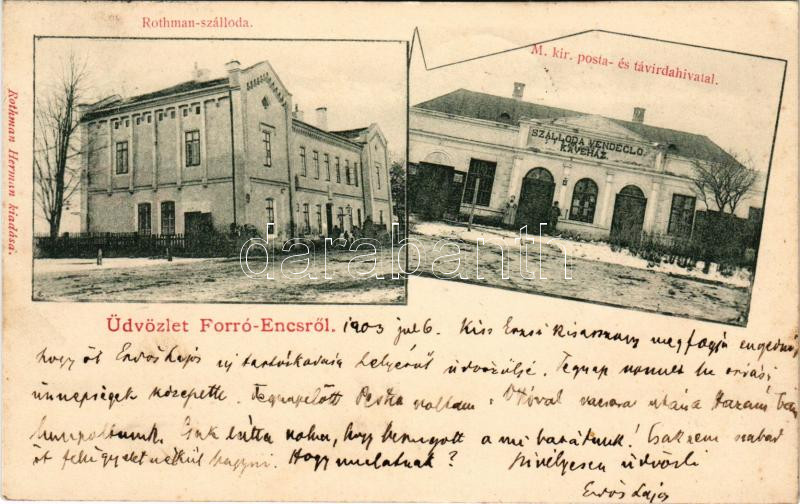 Rothman-szálloda.
M. kir. posta- és távirdahivatal.
SZÁLLODA VENDÉGLŐ
KÁVÉHÁZ.
Rothman Herman kiadása.
darabanth
Üdvözlet Forró-Encsről. 1903 jul 6. Kiss Erzsi kisasszony megfogja engedni
hogy őt Erdős Lajos új tartózkodási helyéről üdvözölje. Tegnap vonult be óriási
ünnepségek közepette. Tegnapelőtt Pesten voltam. vacsora után a
a mi barátunk! Csak nem szabad
őt felügyelet nélkül hagyni. Hogy mulatnak? Szívélyesen üdvözli
Erdős Lajos